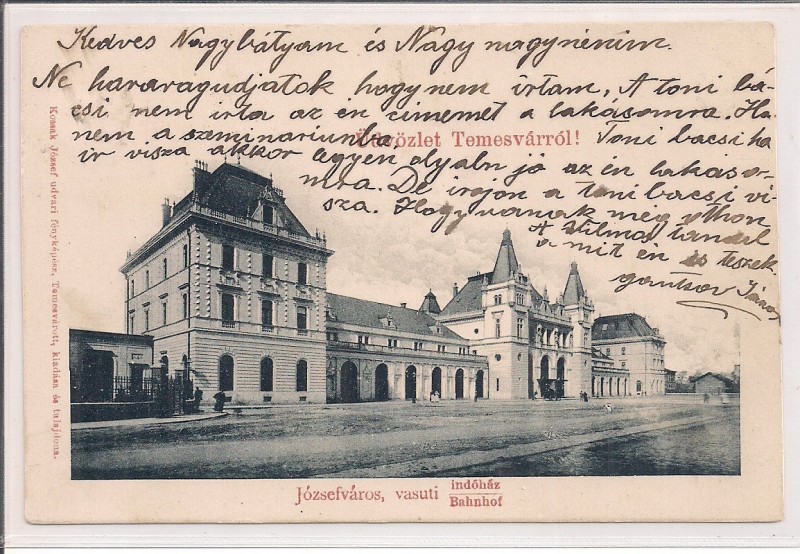 Kedves Nagybátyam és Nagy nagynénim.
Ne hararagudjatok hogy nem írtam, A toni bá-
csi nem irta az én cimemet a lakásomra. Ha-
nem a szemináriumba. Toni bacsi ha
Üdvözlet Temesvárról!
ir visza akkor legyen olyaln jó az én lakáso-
mra. De irjon a toni bacsi vi-
sza. Hogy vanak még othon
A Vilmos tanúl
a mit én is teszek.
János
Kossak József udvari fényképész, Temesvárott, kiadása és tulajdona.
Józsefváros, vasuti indóház
Bahnhof